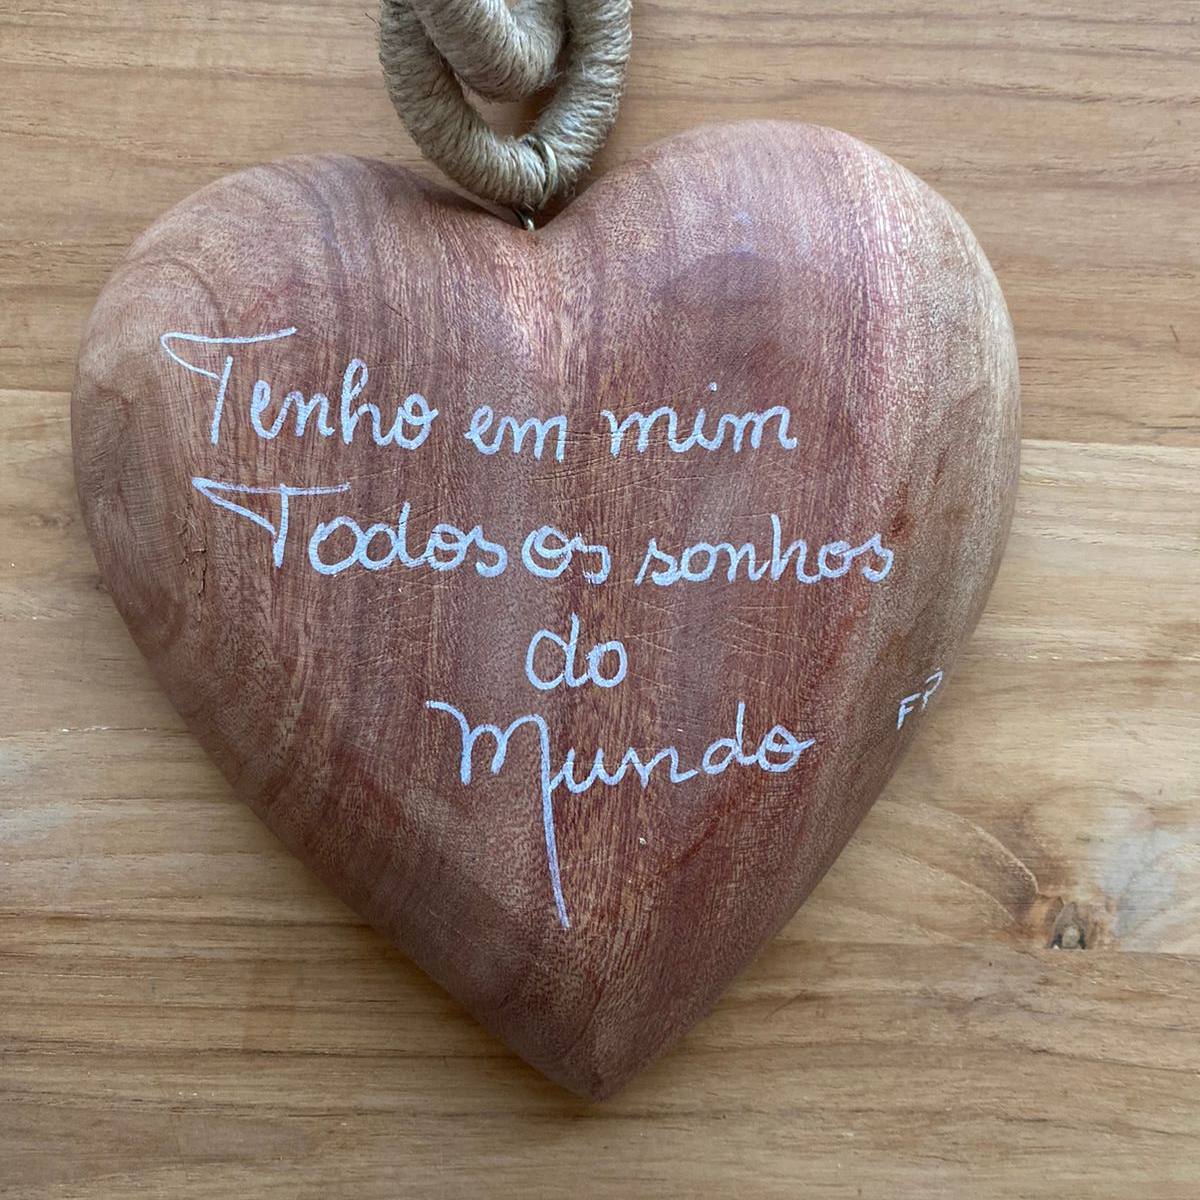 Tenho em mim
Todos os sonhos
do
Mundo
FP